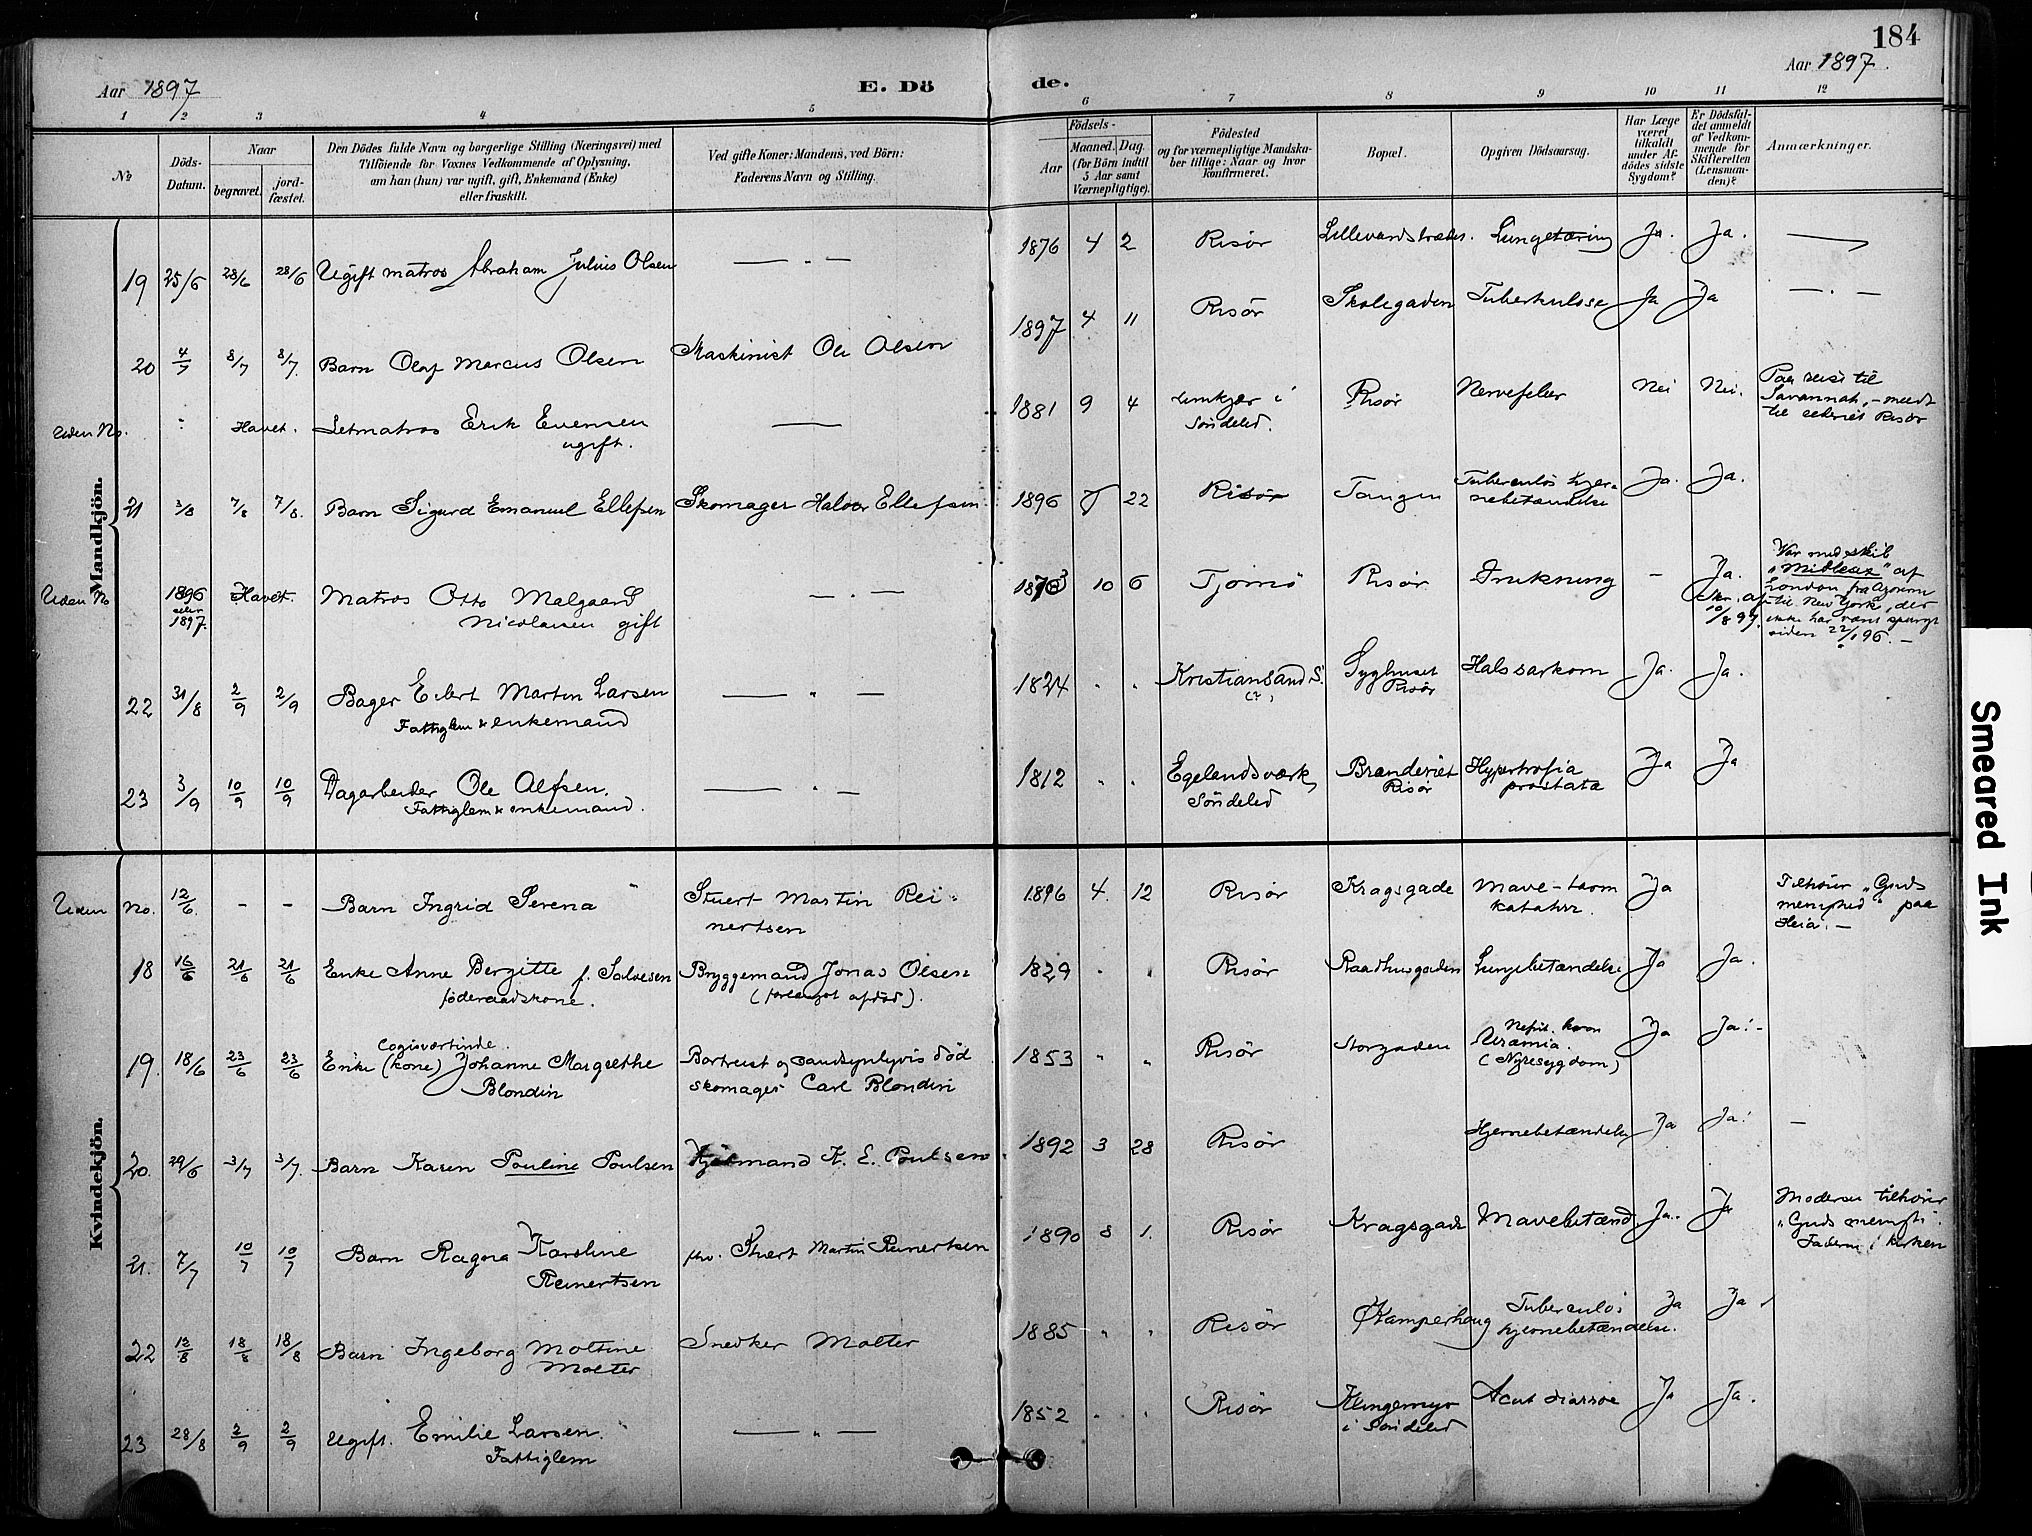 184
Aar 1897
E. Dö
de.
Aar 1897.
1 2 3 4 5 6 7 8 9 10 11 12
No
Döds-Datum.
Naar
begravet.
jord-fæstet.
Den Dödes fulde Navn og borgerlige Stilling (Næringsvei) med
Tilföiende for Voxnes Vedkommende af Oplysning,
om han (hun) var ugift, gift, Enkemand (Enke)
eller fraskilt.
Ved gifte Koner: Mandens, ved Börn:
Faderens Navn og Stilling.
Födsels-
Aar
Maaned. Dag.
(for Börn indtil
5 Aar samt
Værnepligtige).
Födested
og for værnepligtige Mandska-
ber tillige: Naar og hvor
konfirmeret.
Bopæl.
Opgiven Dödsaarsag.
Har Læge
været
tilkaldt
under Af-
dödes sidste
Sygdom?
Er Dödsfal-
det anmeldt
af Vedkom-
mende for
Skifteretten
(Lensman-
den)?
Anmærkninger.
Mandkjön.
19 25/6 28/6 28/6 Ugift matros Abraham Julius Olsen — " — 1876 4 2 Risör Lillevandstrædet. Lungetæring Ja. Ja. —
20 4/7 8/7 8/7. Barn Olaf Marcus Olsen Maskinist Ole Olsen 1897 4 11 Risör Skolegaden Tuberkulose Ja Ja — . —
Uden No. Havet. Letmatros Erik Evensen — 1881 9 4 i Risör Nervefeber Nei Nei. Paa reise til
ugift. Söndeled. Savannah, -
Risör
21 3/8 7/8 7/8. Barn Sigurd Emanuel Ellefsen Skomager Halvor Ellefsen 1896 22 Risör Tangen Tuberculös hjer-
nebetændelse Ja. Ja.
Uden No 1896 Havet. Matros Otto Malgaard — . — 10 6 Tjömö Risör Drukning - Ja. Var med skib
eller
1897. Nicolaisen gift "Middlesex" af
London fra
til New York, der
10/8 99. ikke har været spurgt
siden 22/1 96. -
22 31/8 2/9 2/9 Bager Eilert Martin Larsen — " — 1824 " " Kristiansand S. Syghuset Halssarkom Ja. Ja.
Fattiglem & enkemand (?) Risör
23 3/9 10/9 10/9 Dagarbeider Ole Alfsen. — " — 1812 " " Egelandsværk, Brænderiet Hypertrofia Ja Ja
Fattiglem & enkemand. Söndeled Risör prostata
Kvindekjön.
Uden No. 12/6. - - Barn Ingrid Serena Stuert Martin Rei- 1896 4. 12 Risör Kragsgade Mave-tarm Ja Tilhörer "Guds
nertsen katahrr. menighed" paa
Heia. -
18 16/6 21/6 21/6 Enke Anne Bergitte f. Salvesen Bryggemand Jonas Olsen 1829 " " Risör Raadhusgaden Lungebetændelse Ja Ja.
föderaadskone. (forlængst afdöd).
Logisværtinde
19. 18/6 23/6 23/6 Enke (kone) Johanne Margrethe Bortreist og sandsynligvis död 1853 " " Risör Storgaden Uræmia. Ja Ja! -
Blondin skomager Carl Blondin (Nyresygdom)
20. 29/6 3/7 3/7. Barn Karen Pouline Poulsen Kjörmand K. E. Poulsen. 1892 3 28 Risör Hjernebetændelse Ja Ja! -
21. 7/7 10/7 10/7 Barn Ragna Karoline fhv. Stuert Martin Reinertsen 1890 8 1. Risör Kragsgade Mavebetænd. Ja. Ja Moderen tilhörer
Reinertsen "Guds menigh".
Faderen i kirken
22 12/8 18/8 18/8 Barn Ingeborg Moltine Snedker Molter 1885 " " Risör Kamperhaug Tuberculös Ja Ja
Molter hjernebetændelse.
23 28/8 2/9 2/9 Ugift. Emilie Larsen. — " — 1852 " " Risör Klingemyr Acut diarroe Ja Ja.
Fattiglem i Söndeled
Smeared Ink